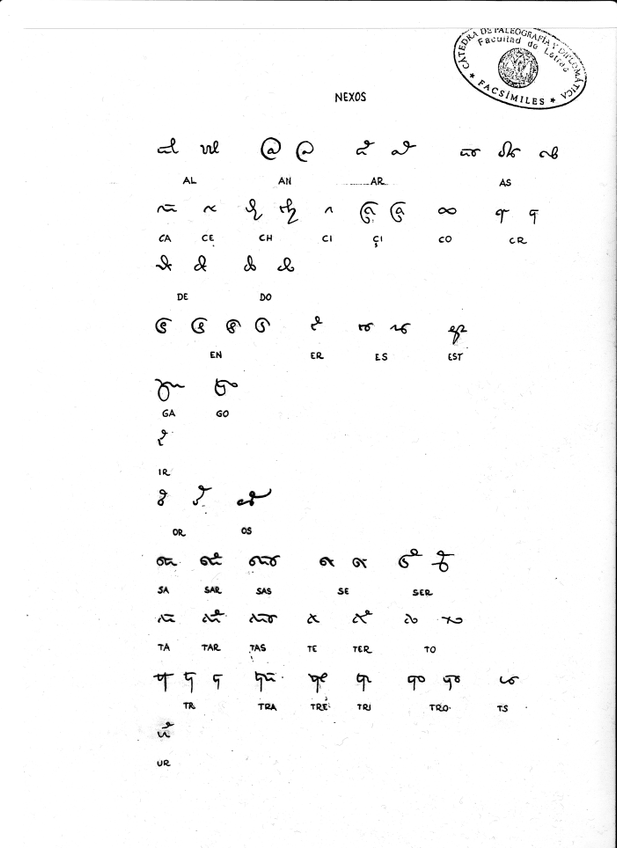 CÁTEDRA DE PALEOGRAFÍA Y DIPLOMÁTICA
Facultad de Letras
* FACSÍMILES *
NEXOS
AL AN AR AS
CA CE CH CI ÇI CO CR
DE DO
EN ER ES EST
GA GO
IR
OR OS
SA SAR SAS SE SER
TA TAR TAS TE TER TO
TR TRA TRE TRI TRO TS
UR